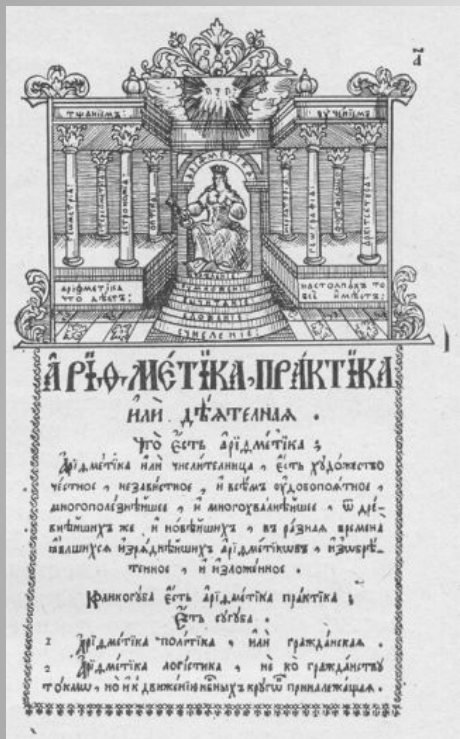 а҃
тщанїемъ:
ѹченїемъ:
арїѳметїка
геометрїа
астрономїа
оптїка
геѡграфїа
арїѳметїка
что дѣетъ:
на столпахъ то
всё имѣетъ:
вычитанїе
счисленїе
А҆РІѲМЕ́ТІКА ПРА́КТІКА
и҆лѝ дѣ́ѧтелнаѧ .
Что̀ є҆́сть а҆рїѳме́тїка ;
А҆рїѳме́тїка и҆лѝ числи́телница , є҆́сть хѹдо́жество
че́стное , неза́вистное , и҆ всѣ̑мъ ѹ҆добопоѧ́тное ,
многополе́знѣйшее , и҆ многохва́лнѣйшее , ѿ дре́-
внѣйшихъ же и҆ новѣ́йшихъ , въ ра́знаѧ времена̀
ꙗ҆ви́вшихсѧ и҆зрѧ́днѣйшихъ а҆рїѳме́тїкѡвъ , и҆з̾ѡбрѣ́-
тенное , и҆ и҆зло́женное .
Коликогу́ба є҆́сть а҆рїѳме́тїка пра́ктїка ;
Є҆́сть сугу́ба .
1 А҆рїѳме́тїка поли́тїка , и҆лѝ гражда́нская .
2 А҆рїѳме́тїка логи́стїка , не ко гражда́нству
то́кмѡ , но и҆ к движе́нїю нб҃ныхъ крꙋгѡ́въ принадлежа́щаѧ .